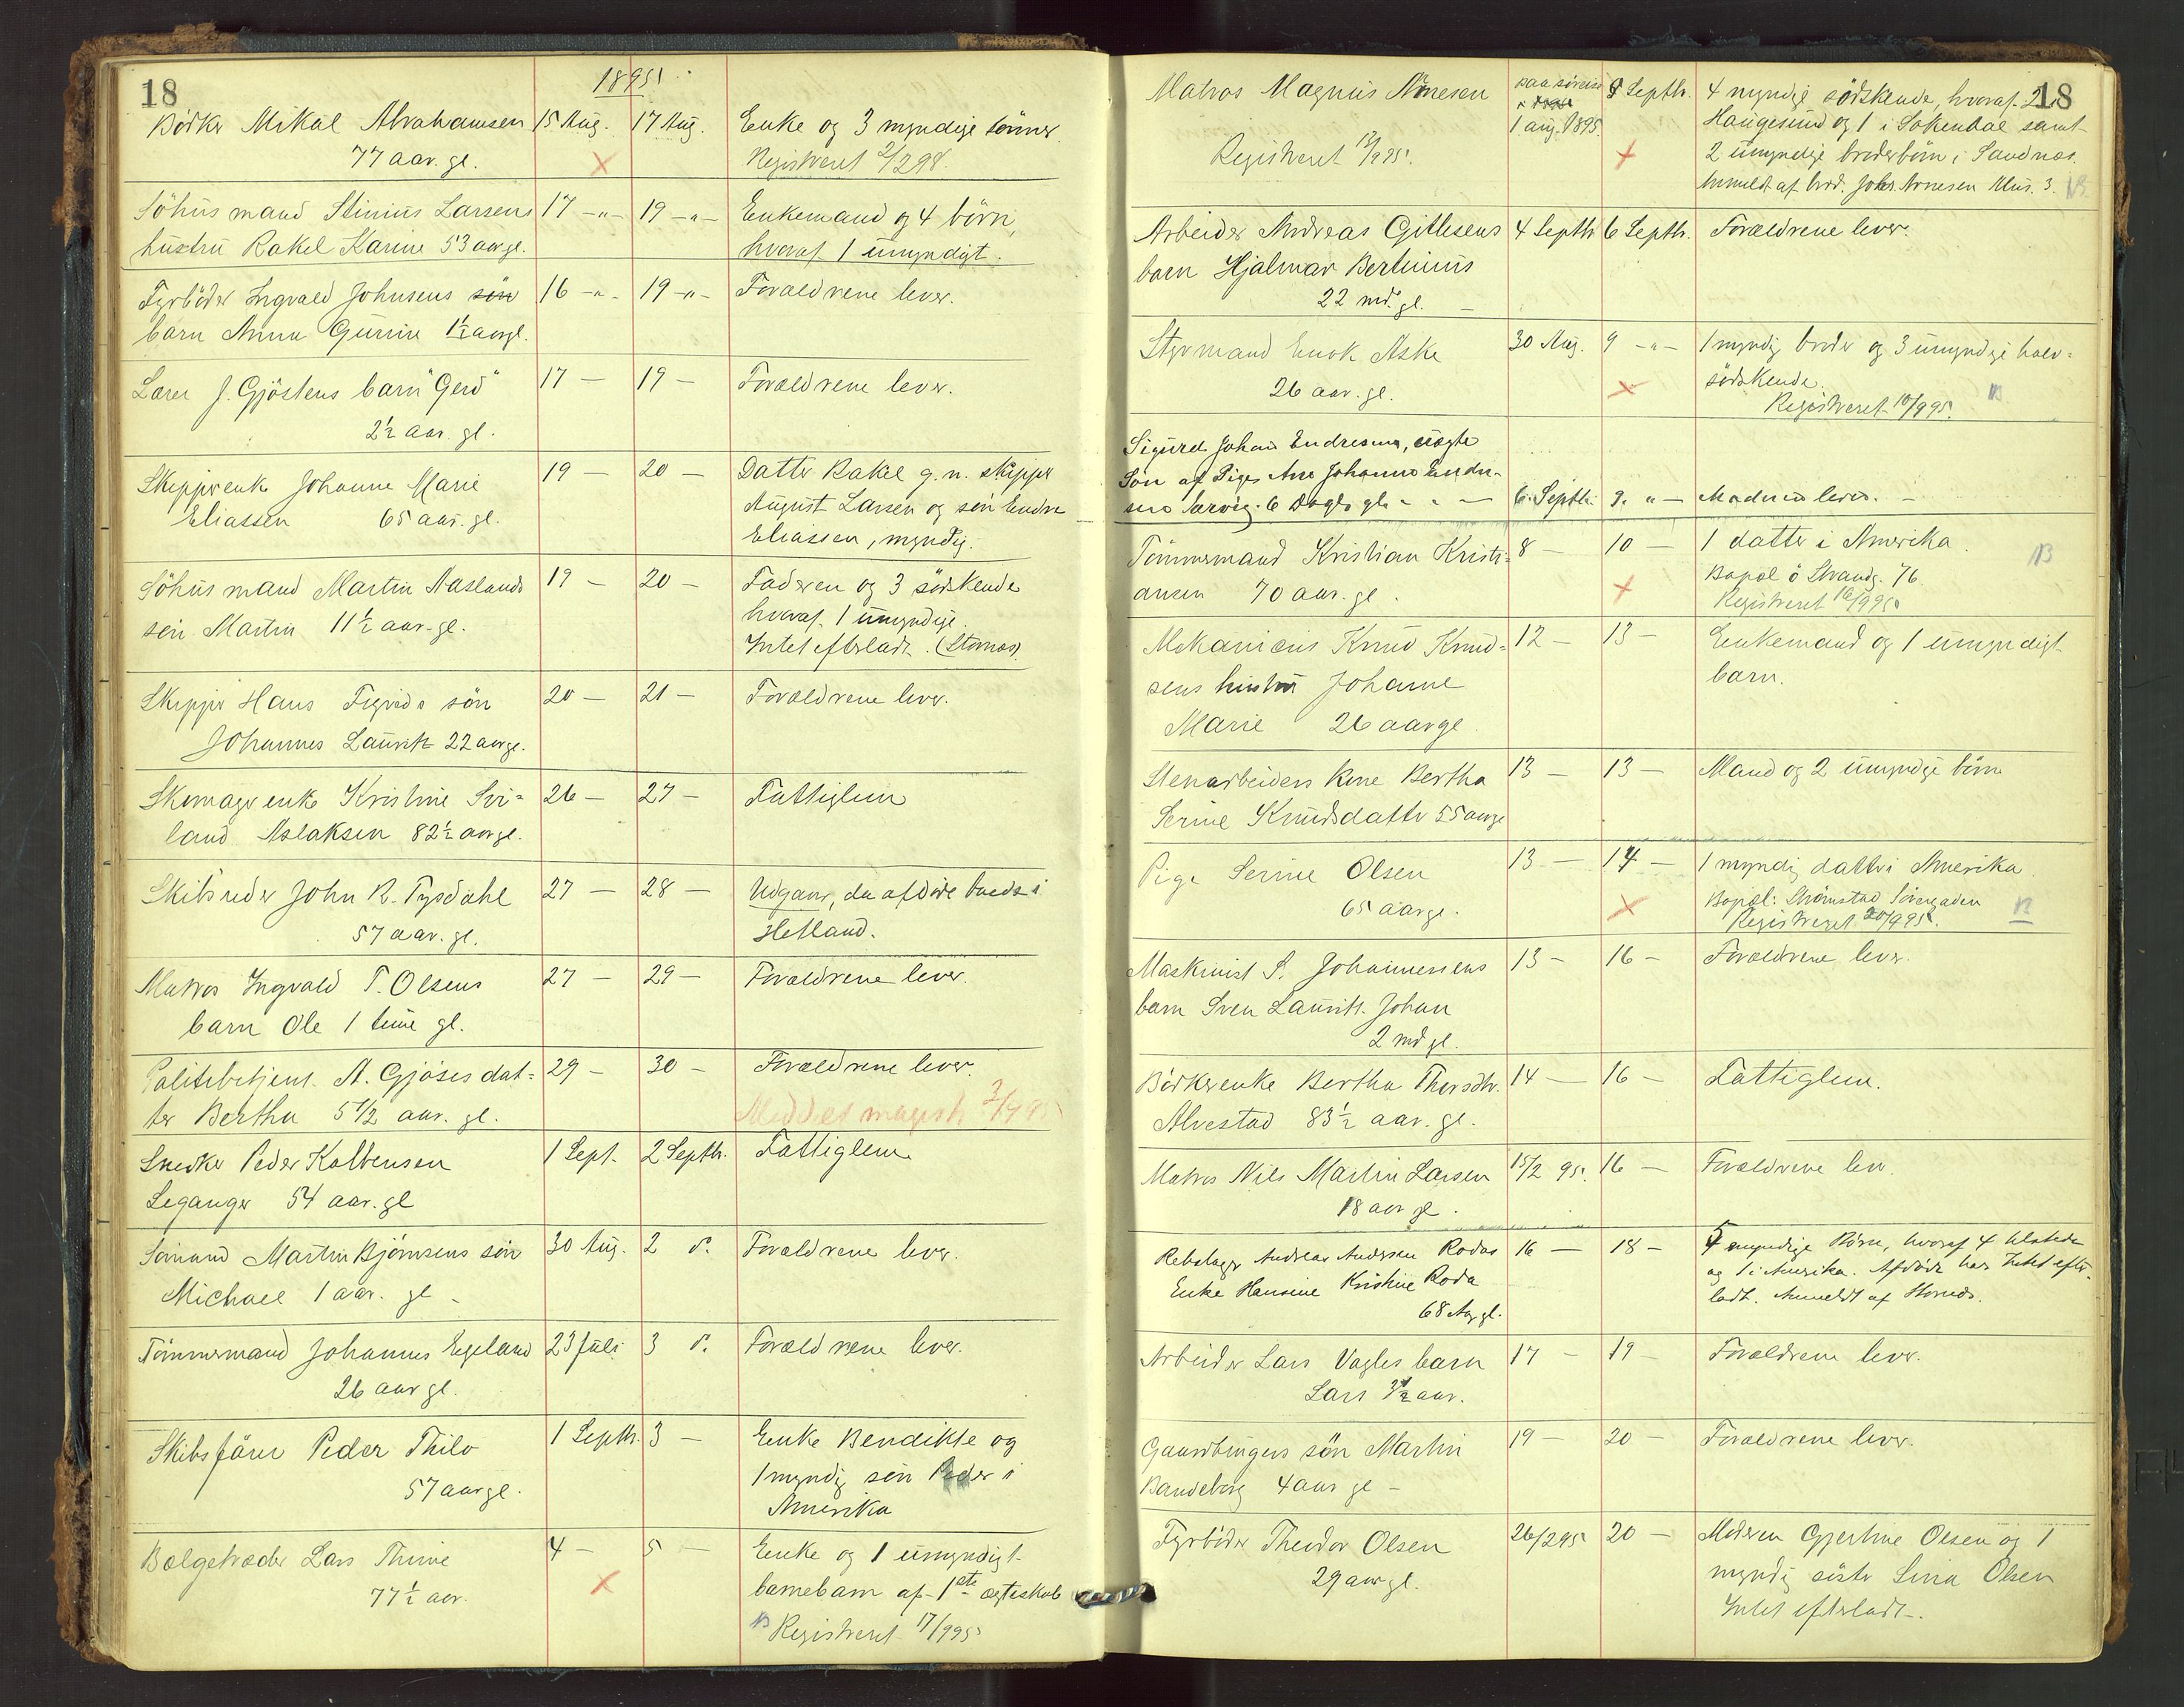 18
1895
Bødker Mikal Abrahamsen 15 Aug. 17 Aug. Enke og 3 myndige sönner
77 aar. gl. Registreret 2/2 98.
Söhusmand Stinius Larsens 17 -"- 19 -"- Enkemand og 4 börn,
hustru Rakel Karine 53 aar gl. hvoraf 1 umyndigt.
Fyrböder Ingvald Johnsens sön 16 -"- 19 -"- Forældrene lever.
barn Anna Gurine 1½ aar gl.
Lærer J. Gjöstens barn "Gerd" 17 — 19 — Forældrene lever.
2½ aar. gl.
Skipperenke Johanne Marie 19 — 20 — Datter Rakel g.m. skipper
Eliassen 65 aar. gl. August Larsen og sön Endre
Eliassen, myndig.
Söhusmand Martin Aaslands 19 — 20 — Faderen og 3 södskende
sön Martin 11½ aar. gl. hvoraf 1 umyndige.
Intet efterladt. (Stornæs).
Skipper Hans Figveds sön 20 — 21 — Forældrene lever.
Johannes Lauritz 22 aar gl.
Skomagerenke Kristine Svi= 26 — 27 — Fattiglem
land Aslaksen 82½ aar gl.
Skibsreder John R. Tysdahl 27 — 28 — Udgaar, da afdöde boede i
57 aar. gl. Hetland.
Matros Ingvald T. Olsens 27 — 29 — Forældrene lever.
barn Ole 1 time gl.
Politibetjent A. Gjöses dat= 29 — 30 — Forældrene lever.
ter Bertha 5½ aar. gl. Meddelt magistr. 3/9 95
Snedker Peder Kolbensen 1 Sept. 2 Septbr. Fattiglem
Leganger 54 aar. gl
Sömand Martin Björnsens sön 30 Aug. 2 d°. Forældrene lever.
Michael 1 aar. gl
Tömmermand Johannes Egeland 23 Juli 3 d°. Forældrene lever.
26 aar gl.
Skibsfører Peder Thilo 1 Septbr. 3 — Enke Bendikte og
57 aar gl. 1 myndig sön Peder i
Amerika
Bælgetræder Lars Thime 4 — 5 — Enke og 1 umyndigt
77½ aar. barnebarn af 1ste ægteskab
Registreret 17/9 95
18
Matros Magnus Arnesen paa søreise 1 aug. 1895. 9 Septbr. 4 myndige södskende, hvoraf 2 i
Haugesund og 1 i Sokendal samt
Registreret 13/9 95. 2 umyndige broderbörn i Sandnæs.
Anmeldt af brod. Johs Arnesen Mus. 3.
Arbeider Andreas Gitlesens 4 Septbr 6 Septbr. Forældrene lever.
barn Hjalmar Bertinius
22 md. gl.
Styrmand Enok Aske 30 Aug. 9 -"- 1 myndig broder og 3 umyndige halv=
26 aar. gl. södskende.
Registreret 10/9 95.
Sigurd Johan Endresen, uægte
Sön af Pige Ane Johanne Endre-
sen Sørvig. 6 Dage gl. 6 Septbr. 9. " — Moderen lever.
Tömmermand Kristian Kristi= 8 — 10 — 1 datter i Amerika.
ansen 70 aar. gl. Bopæl ö Strandg. 76.
Registreret 16/9 95.
Mekanicus Knud Knud= 12 — 13 — Enkemand og 1 umyndigt
sens hustru Johanne barn.
Marie 26 aar gl.
Stenarbeiders Kone Bertha 13 — 13 — Mand og 2 umyndige börn
Serine Knudsdatter 55 aar gl
Pige Serine Olsen 13 — 14 — 1 myndig datter i Amerika.
65 aar gl. Bopæl: Strömstad Söregaden
Registreret 20/9 95.
Maskinist S. Johannesens 13 — 16 — Forældrene lever.
barn Sven Lauritz Johan
2 md gl.
Bödkerenke Bertha Thorsdtr. 14 — 16 — Fattiglem.
Alvestad 83½ aar. gl.
Matros Nils Martin Larsen 15/2 95. 16 — Forældrene lev.
18 aar gl.
Rebslager Andreas Andersen Rodas 16 — 18 — 5 myndige Börn, hvoraf 4 tilstede
Enke Hansine Kristine Roda og 1 i Amerika. Afdöde har Intet efter-
68 Aar gl. ladt. Anmeldt af Stornæs.
Arbeider Lars Vagles barn 17 — 19 — Forældrene lever.
Lars 3½ aar.
Gaardbrugers sön Martin 19 — 20 — Forældrene lever.
Bandeberg 4 aar gl —
Fyrböder Theodor Olsen 26/2 95 20 — Moderen Gjertine Olsen og 1
29 aar gl. myndig söster Lina Olsen
Intet efterladt.